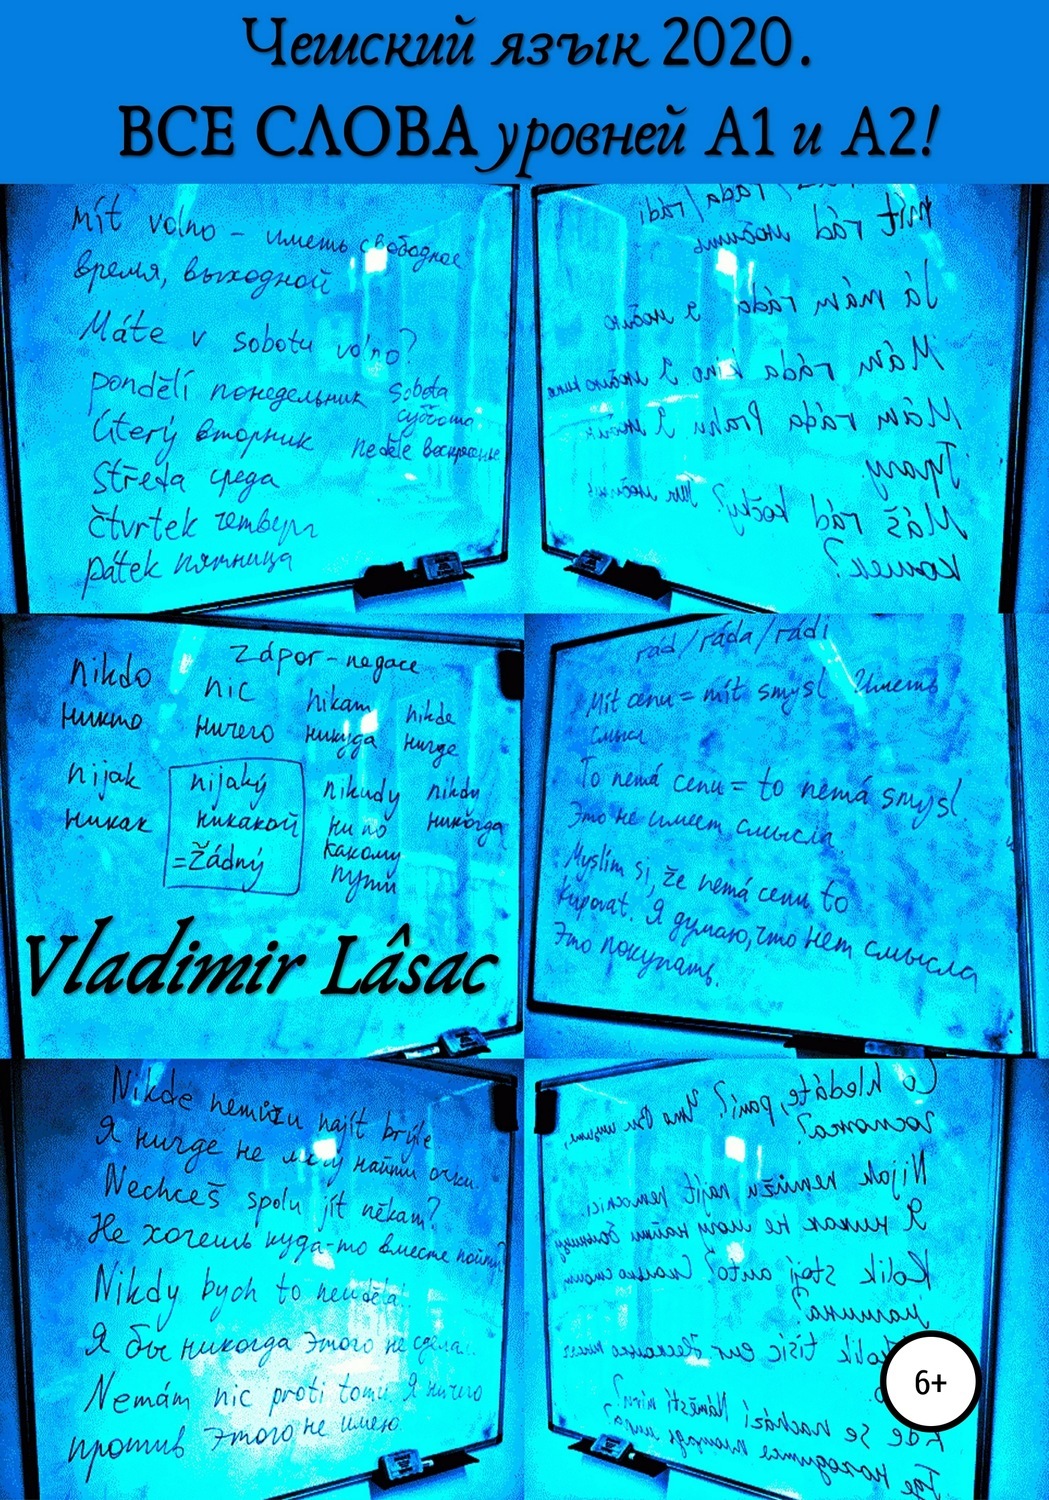 Чешский язык 2020.
ВСЕ СЛОВА уровней А1 и А2!
Mít volno – иметь свободное
время, выходной
Máte v sobotu volno?
pondělí понедельник
sobota
суббота
Úterý вторник
neděle воскресенье
Středa среда
čtvrtek четверг
pátek пятница
rád/rádi
Mít rád любить
Já mám ráda я люблю
Mám ráda kino Я люблю кино
Mám ráda Prahu Я люблю
Прагу
Máš rád kočky? Ты любишь
кошек?
Zápor – negace
nikdo
никто
nic
ничего
nikam
никуда
nikde
нигде
nijak
никак
nijaký
никакой
=Žádný
nikudy
ни по
какому
пути
nikdy
никогда
rád/ráda/rádi
Mít cenu = mít smysl Иметь
смысл
To nemá cenu = to nemá smysl.
Это не имеет смысла
Myslím si, že nemá cenu to
kupovat. Я думаю, что нет смысла
Это покупать.
Vladimir Lâsac
Nikde nemůžu najít brýle
Я нигде не могу найти очки
Nechceš spolu jít někam?
Не хочешь куда-то вместе пойти?
Nikdy bych to neudělal
Я бы никогда этого не сделал
Nemám nic proti tomu Я ничего
против этого не имею
Co hledáte, paní? Что Вы ищите,
госпожа?
Nijak nemůžu najít nemocnici.
Я никак не могу найти больницу
Kolik stojí auto? Сколько стоит
машина?
tisíc eur Несколько тысяч
Kde se nachází Náměstí míru?
Где находится площадь мира?
6+